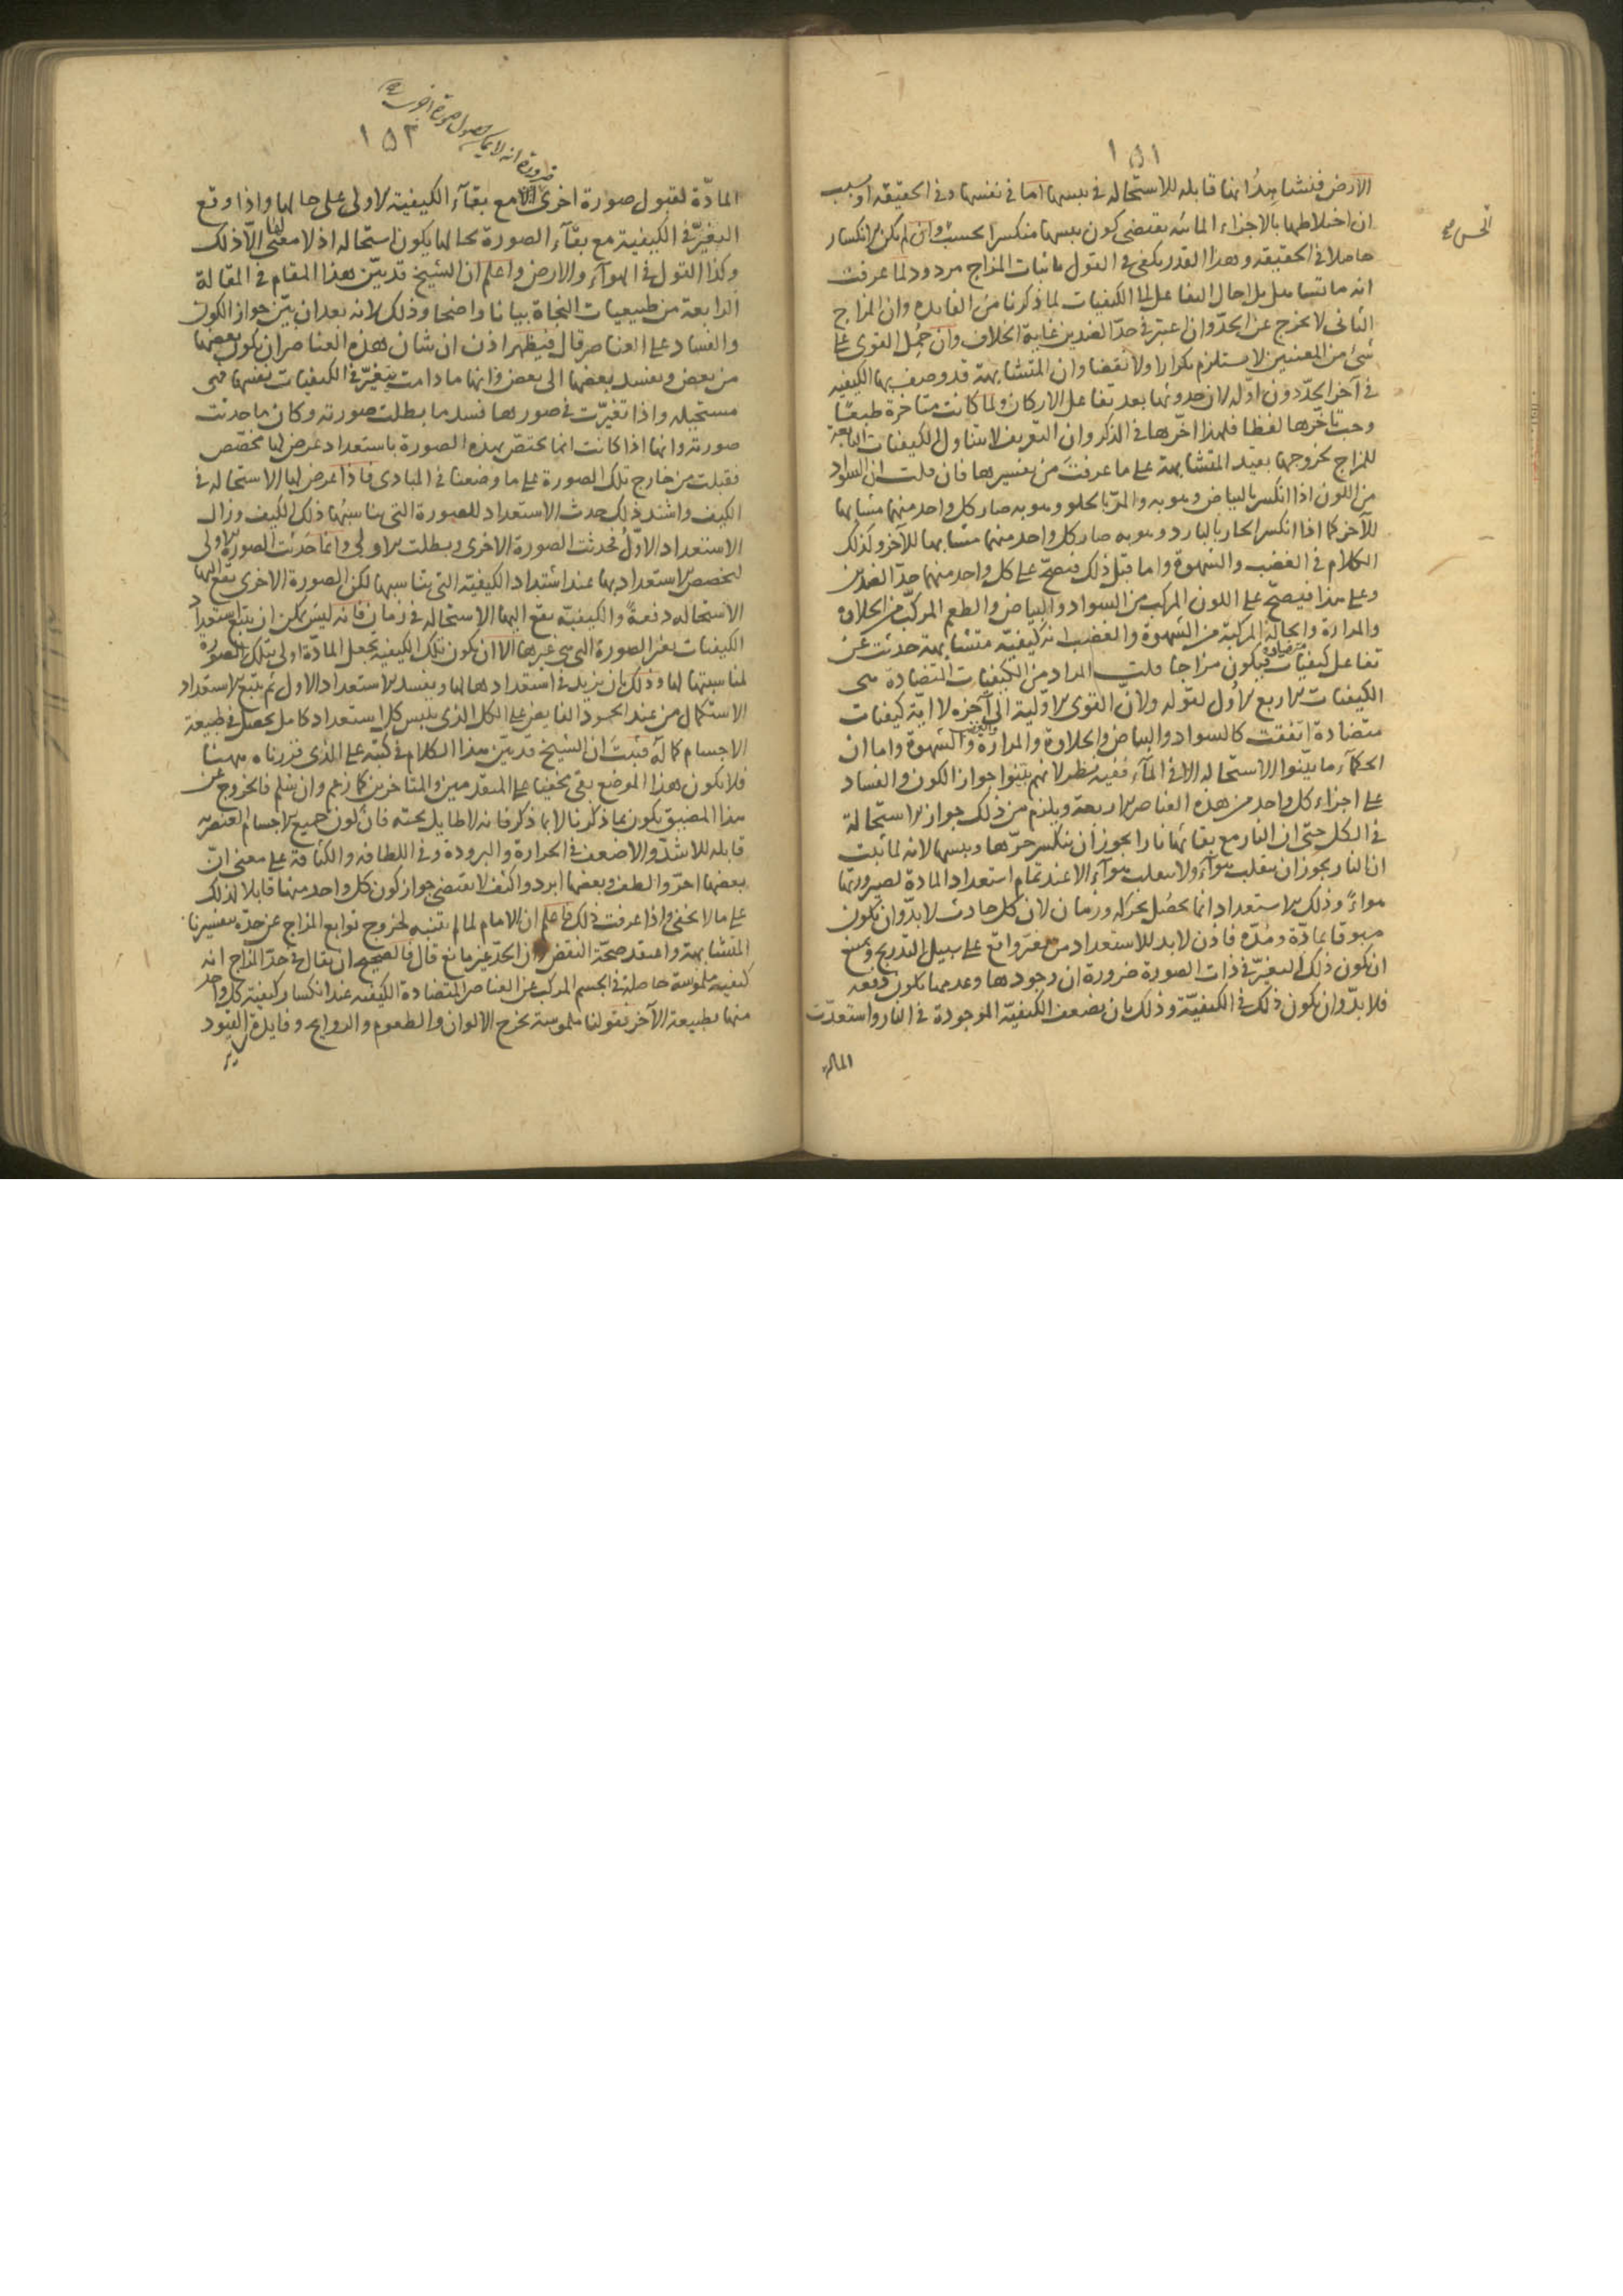 ١٥١
الارض فنشاهد انها قابله للاستحاله في يبسها اما في نفسها وفي الحقيقه او بسبب
ان اختلاطها بالاجزاء المائية يقتضى كون يبسها منكسرا بحسب وان لم يكن الانكسار
الحس صح
حاصلا في الحقيقه وهذا القدر يكفى في القول باثبات المزاج مردود لما عرفت
انه ما تساهل بل احال التفاعل الى الكيفيات لما ذكرنا من الفايده وان المزاج
الثانى لا يخرج عن الحد وان اعتبر في حد الضدين غاية الخلاف وان حمل القوى على
شئ من المعنيين لا يستلزم تكرارا ولا نقضا وان المتشابهة قد وصف بها الكيفيه
في آخر الحد دون اوله لان حدوثها بعد تفاعل الاركان ولما كانت متاخرة طبعا
وجب تاخرها لفظا فلهذا اخرها في الذكر وان التعريف لا يتناول الكيفيات التابعة
للمزاج لخروجها بقيد المتشابهة على ما عرفت من تفسيرها فان قلت ان السواد
من اللون اذا انكسر بالبياض وهو به والمر بالحلو وهو به صار كل واحد منهما مشابها
للآخر كما اذا انكسر الحار بالبارد وهو به صار كل واحد منهما مشابها للآخر وكذلك
الكلام في الغضب والشهوة واما قبل ذلك فيصح على كل واحد منهما حد الضدين
وعلى هذا فيصح على اللون المركب من السواد والبياض والطعم المركب من الحلاوة
والمرارة والحالة المركبة من الشهوة والغضب انه كيفية متشابهة حدثت عن
تفاعل كيفيات متضادة فيكون مزاجا قلت المراد من الكيفيات المتضادة هى
الكيفيات الاربع الاول لقوله ولان القوى الاولية الى آخره لا اية كيفيات
متضادة اتفقت كالسواد والبياض والحلاوة والمرارة والغضب والشهوة واما ان
الحكمآء ما بينوا الاستحاله الا في المآء ففيه نظر لانهم بينوا جواز الكون والفساد
على اجزاء كل واحد من هذه العناصر الاربعة ويلزم من ذلك جواز الاستحالة
في الكل حتى ان النار مع بقائها نارا يجوز ان ينكسر حرها ويبسها لانه لما ثبت
ان النار يجوز ان تنقلب هوآء ولا تنقلب هوآء الا عند تمام استعداد المادة لصيرورتها
هواءً وذلك الاستعداد انما يحصل بحركه وزمان لان كل حادث لابد وان يكون
مسبوقا بمادة ومدة فاذن لابد للاستعداد من تغير واقع على سبيل التدريج ويمتنع
ان يكون ذلك التغير في ذات الصورة ضرورة ان وجودها وعدمها يكون دفعه
فلا بد وان يكون ذلك في الكيفية وذلك بان يضعف الكيفية الموجودة في النار واستعدت
المادة
١٥٣
ضرورة انه لا يمكن حصول صورة اخرى صح
المادة لقبول صورة اخرى الا مع بقآء الكيفية الاولى على حالها واذا وقع
التغير في الكيفية مع بقآء الصورة بحالها يكون استحاله اذ لا معنى لها الا ذلك
وكذا القول في الهوآء والارض واعلم ان الشيخ قد بين هذا المقام في المقالة
الرابعة من طبيعيات النجاة بيانا واضحا وذلك لانه بعد ان بين جواز الكون
والفساد على العناصر قال فيظهر اذن ان شان هذه العناصر ان يكون بعضها
من بعض ويفسد بعضها الى بعض وانها ما دامت يتغير في الكيفيات نفسها فهى
مستحيله واذا تغيرت في صورها فسد ما بطلت صورته وكان ما حدثت
صورته وانها اذا كانت انما يختص بهذه الصورة باستعداد عرض لها مخصص
فقبلت من خارج تلك الصورة على ما وضعنا في المبادى فاذا عرض لها الاستحاله في
الكيف واشتد ذلك حدث الاستعداد للصورة التى يناسبها ذلك الكيف وزال
الاستعداد الاول فحدثت الصورة الاخرى وبطلت الاولى وانما حدثت الصورة الاولى
لتخصص الاستعداد بها عند اشتداد الكيفية التى يناسبها لكن الصورة الاخرى يقع اليها
الاستحاله دفعةً والكيفية يقع اليها الاستحاله في زمان فانه ليس يمكن ان يتبع استعداد
الكيفيات بغير الصورة التى هى غيرها الا ان يكون تلك الكيفية تجعل المادة اولى بتلك الصورة
لمناسبتها لها وذلك بان يزيد في استعدادها لها ويفسد الاستعداد الاول ثم يتبع الاستعداد
الاستكمال من عند الجود الفايض على الكل الذى يلبس كل استعداد كامل يحصل في طبيعة
الاجسام كماله فثبت ان الشيخ قد بين هذا الكلام في كتبه على الذى قررناه ههنا
فلا يكون هذا الموضع بقى مخفيا على المتقدمين والمتاخرين كما زعم وان سلم فالخروج عن
هذا المضيق يكون بما ذكرنا لا بما ذكر فانه لا طايل تحته فان كون جميع الاجسام العنصرية
قابله للاشد والاضعف في الحرارة والبرودة وفي اللطافه والكثافة على معنى ان
بعضها احر والطف وبعضها ابرد واكثف لا يقتضى جواز كون كل واحد منها قابلا لذلك
على ما لا يخفى واذا عرفت ذلك فاعلم ان الامام لما لم يتنبه لخروج توابع المزاج عن حده بتفسيرنا
المتشابهة واعتقد صحة النقض وان الحد غير مانع قال فالصحيح ان يقال في حد المزاج انه
كيفية ملموسة حاصلة في الجسم المركب عن العناصر المتضادة الكيفيه عند انكسار كيفية كل واحد
منها بطبيعة الآخر بقولنا ملموسة يخرج الالوان والطعوم والروايح وفايدة القيود